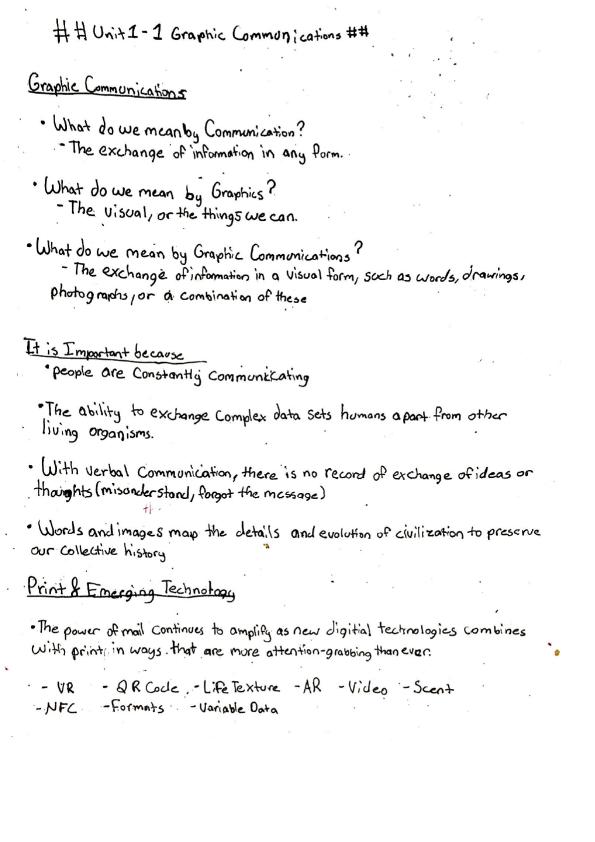 ## Unit 1-1 Graphic Communications ##
Graphic Communications
• What do we mean by Communication?
- The exchange of information in any form.
• What do we mean by Graphics?
- The visual, or the things we can.
• What do we mean by Graphic Communications?
- The exchange of information in a visual form, such as words, drawings,
photographs, or a combination of these
It is Important because
• people are Constantly Communicating
• The ability to exchange Complex data sets humans apart from other
living organisms.
• With verbal Communication, there is no record of exchange of ideas or
thoughts (misunderstand, forgot the message)
• Words and images map the details and evolution of civilization to preserve
our Collective history
Print & Emerging Technology
• The power of mail Continues to amplify as new digitial technologies combines
with print in ways that are more attention-grabbing than ever.
- VR - QR Code - Life Texture - AR - Video - Scent
- NFC - Formats - Variable Data